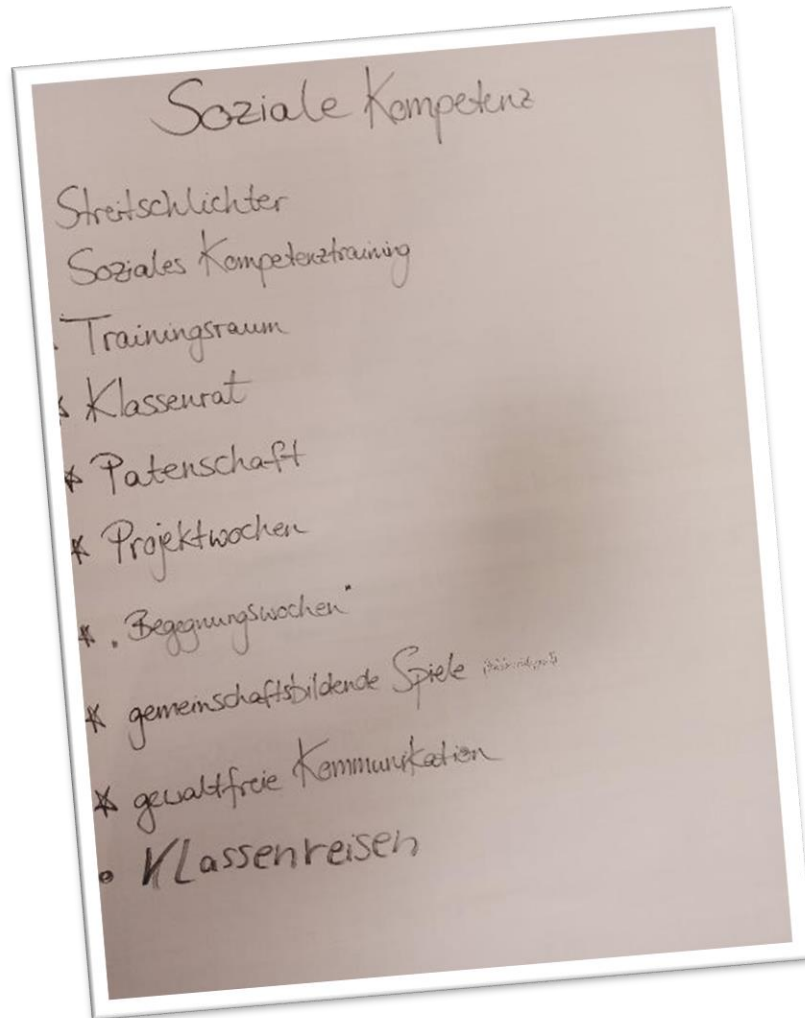 Soziale Kompetenz
Streitschlichter
Soziales Kompetenztraining
· Trainingsraum
* Klassenrat
* Patenschaft
* Projektwochen
* „Begegnungswochen"
* gemeinschaftsbildende Spiele
* gewaltfreie Kommunikation
• Klassenreisen